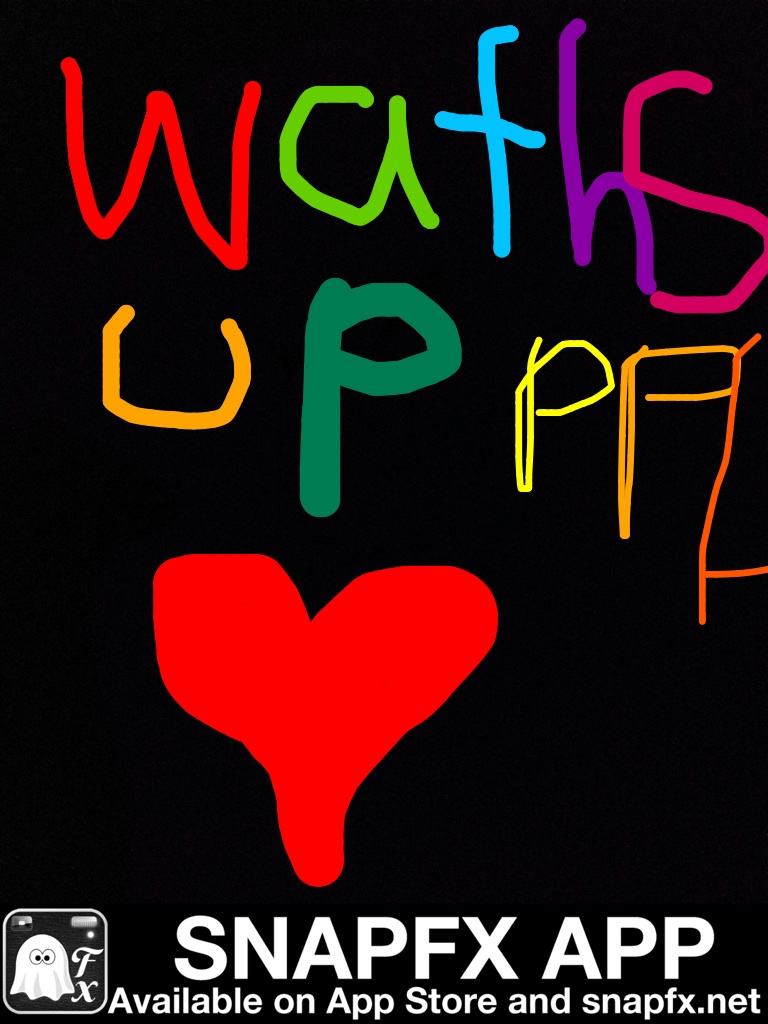 waths
up ppl
SNAPFX APP
Fx
Available on App Store and snapfx.net